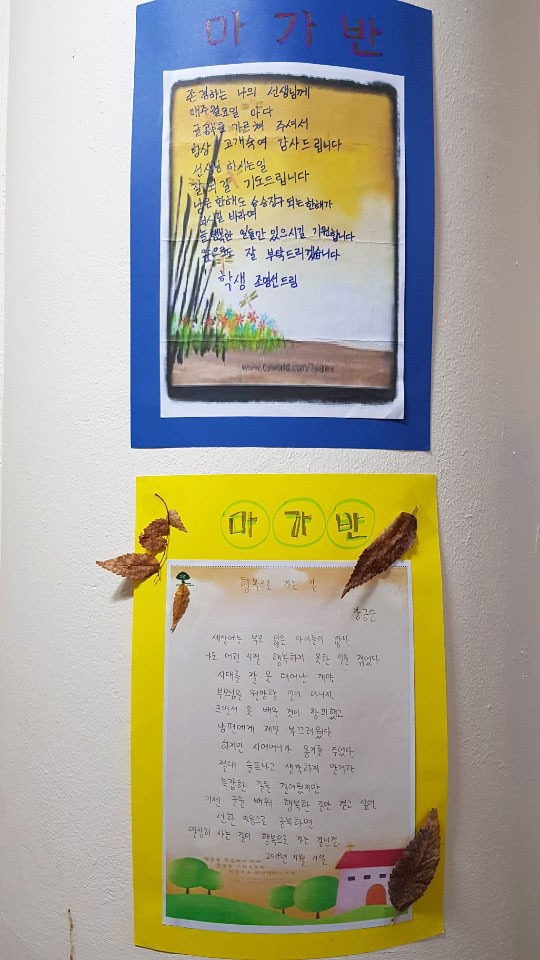 마가반
존경하는 나의 선생님께
매주 월요일 마다
글공부를 가르쳐 주셔서
항상 고개숙여 감사드립니다
선생님 하시는 일
잘 되길 기도드립니다
남은 한해도 승승장구 되는 한해가
되시길 바라며
늘 행복한 일들만 있으시길 기원합니다
앞으로도 잘 부탁드리겠습니다
학생 조명선드림
마가반
행복으로 가는 길
세상에는 부모 잃은 아이들이 많다.
나도 어린 시절 행복하지 못한 일을 겪었다.
시대를 잘 못 태어난 게야.
부모님을 원망할 일이 아니지.
크면서 못 배운 것이 창피했고
남편에게 제일 부끄러웠다
하지만 시어머니가 용기를 주었다.
절대 슬프다고 생각하지 말거라
깜깜한 길을 걸어왔지만
이젠 글을 배워 행복한 길만 걷고 싶어.
선한 마음으로 공부하면
열심히 사는 길이 행복으로 가는 길인걸.